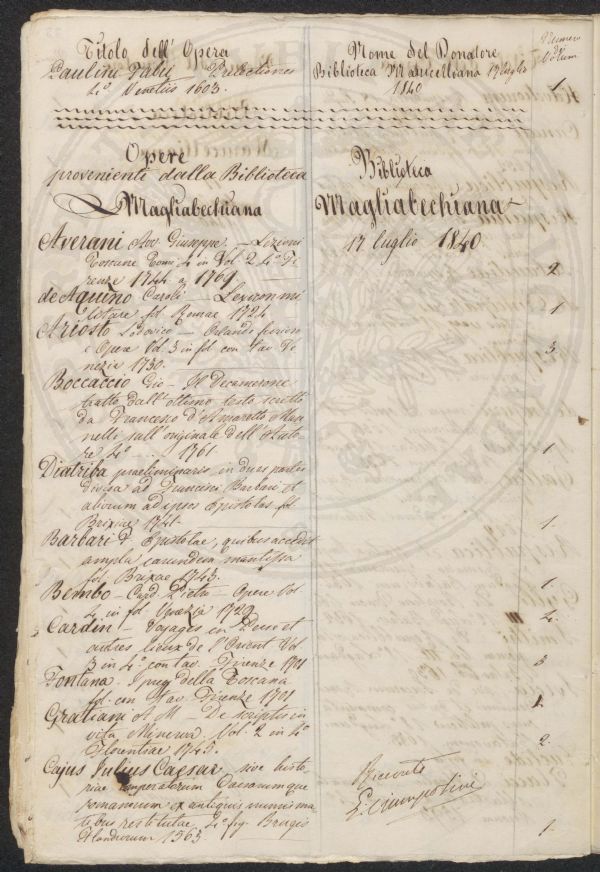 Titolo dell' Opera
Nome del Donatore
Numero
di
Volum
Paulini Fabij Prelectiones
Biblioteca Marucelliana 17 luglio
4.º Venetiis 1603.
1840
1
Opere
proveniente dalla Biblioteca
Magliabechiana
Biblioteca
Magliabechiana
17 luglio 1840.
Averani Avv. Giuseppe – Lezioni
Toscane Tomi 4 in Vol. 2 4.º Fi
renze 1744 a 1769
2
de Aquino Caroli – Lexicon mi
litare fol. Romae 1724
1
Ariosto Lodovico – Orlando furioso
e Opere Vol. 3 in fol. con Tav. Ve
nezia 1730.
3.
Boccaccio Gio – Il Decamerone
tratto dall' ottimo testo scritto
da Francesco d'Amaretto Man
nelli sull' originale dell' Auto
re 4.º ... 1761
1
Diatriba praeliminaris in duas partes
divisa ad Francisci Barbari et
aliorum ad ipsos Epistolas fol.
Brixiae 1741.
1.
Barbari F. Epistolae, quibus accedit
ampla earundem mantissa
fol. Brixae 1743.
1.
Bembo – Card. Pietro – Opere Vol
4 in fol. Venezia 1729
4.
Cardin – Voyages en Perse et
autres lieux de l'Orient Vol
3 in 4.º con tav.
3
Fontana della Toscana
fol. con Tav. Firenze 1701
1.
Gratiani A M – De scriptis in
vita Minerva Vol. 2 in 4.º
Florentiae 1745.
2
Cajus Julius Caesar sive histo
riae Imperatorum Caesarumque
romanorum ex antiquis numisma
tibus restitutae 4.º fig. Brugis
Flandrorum 1563
1.
Ricevuto